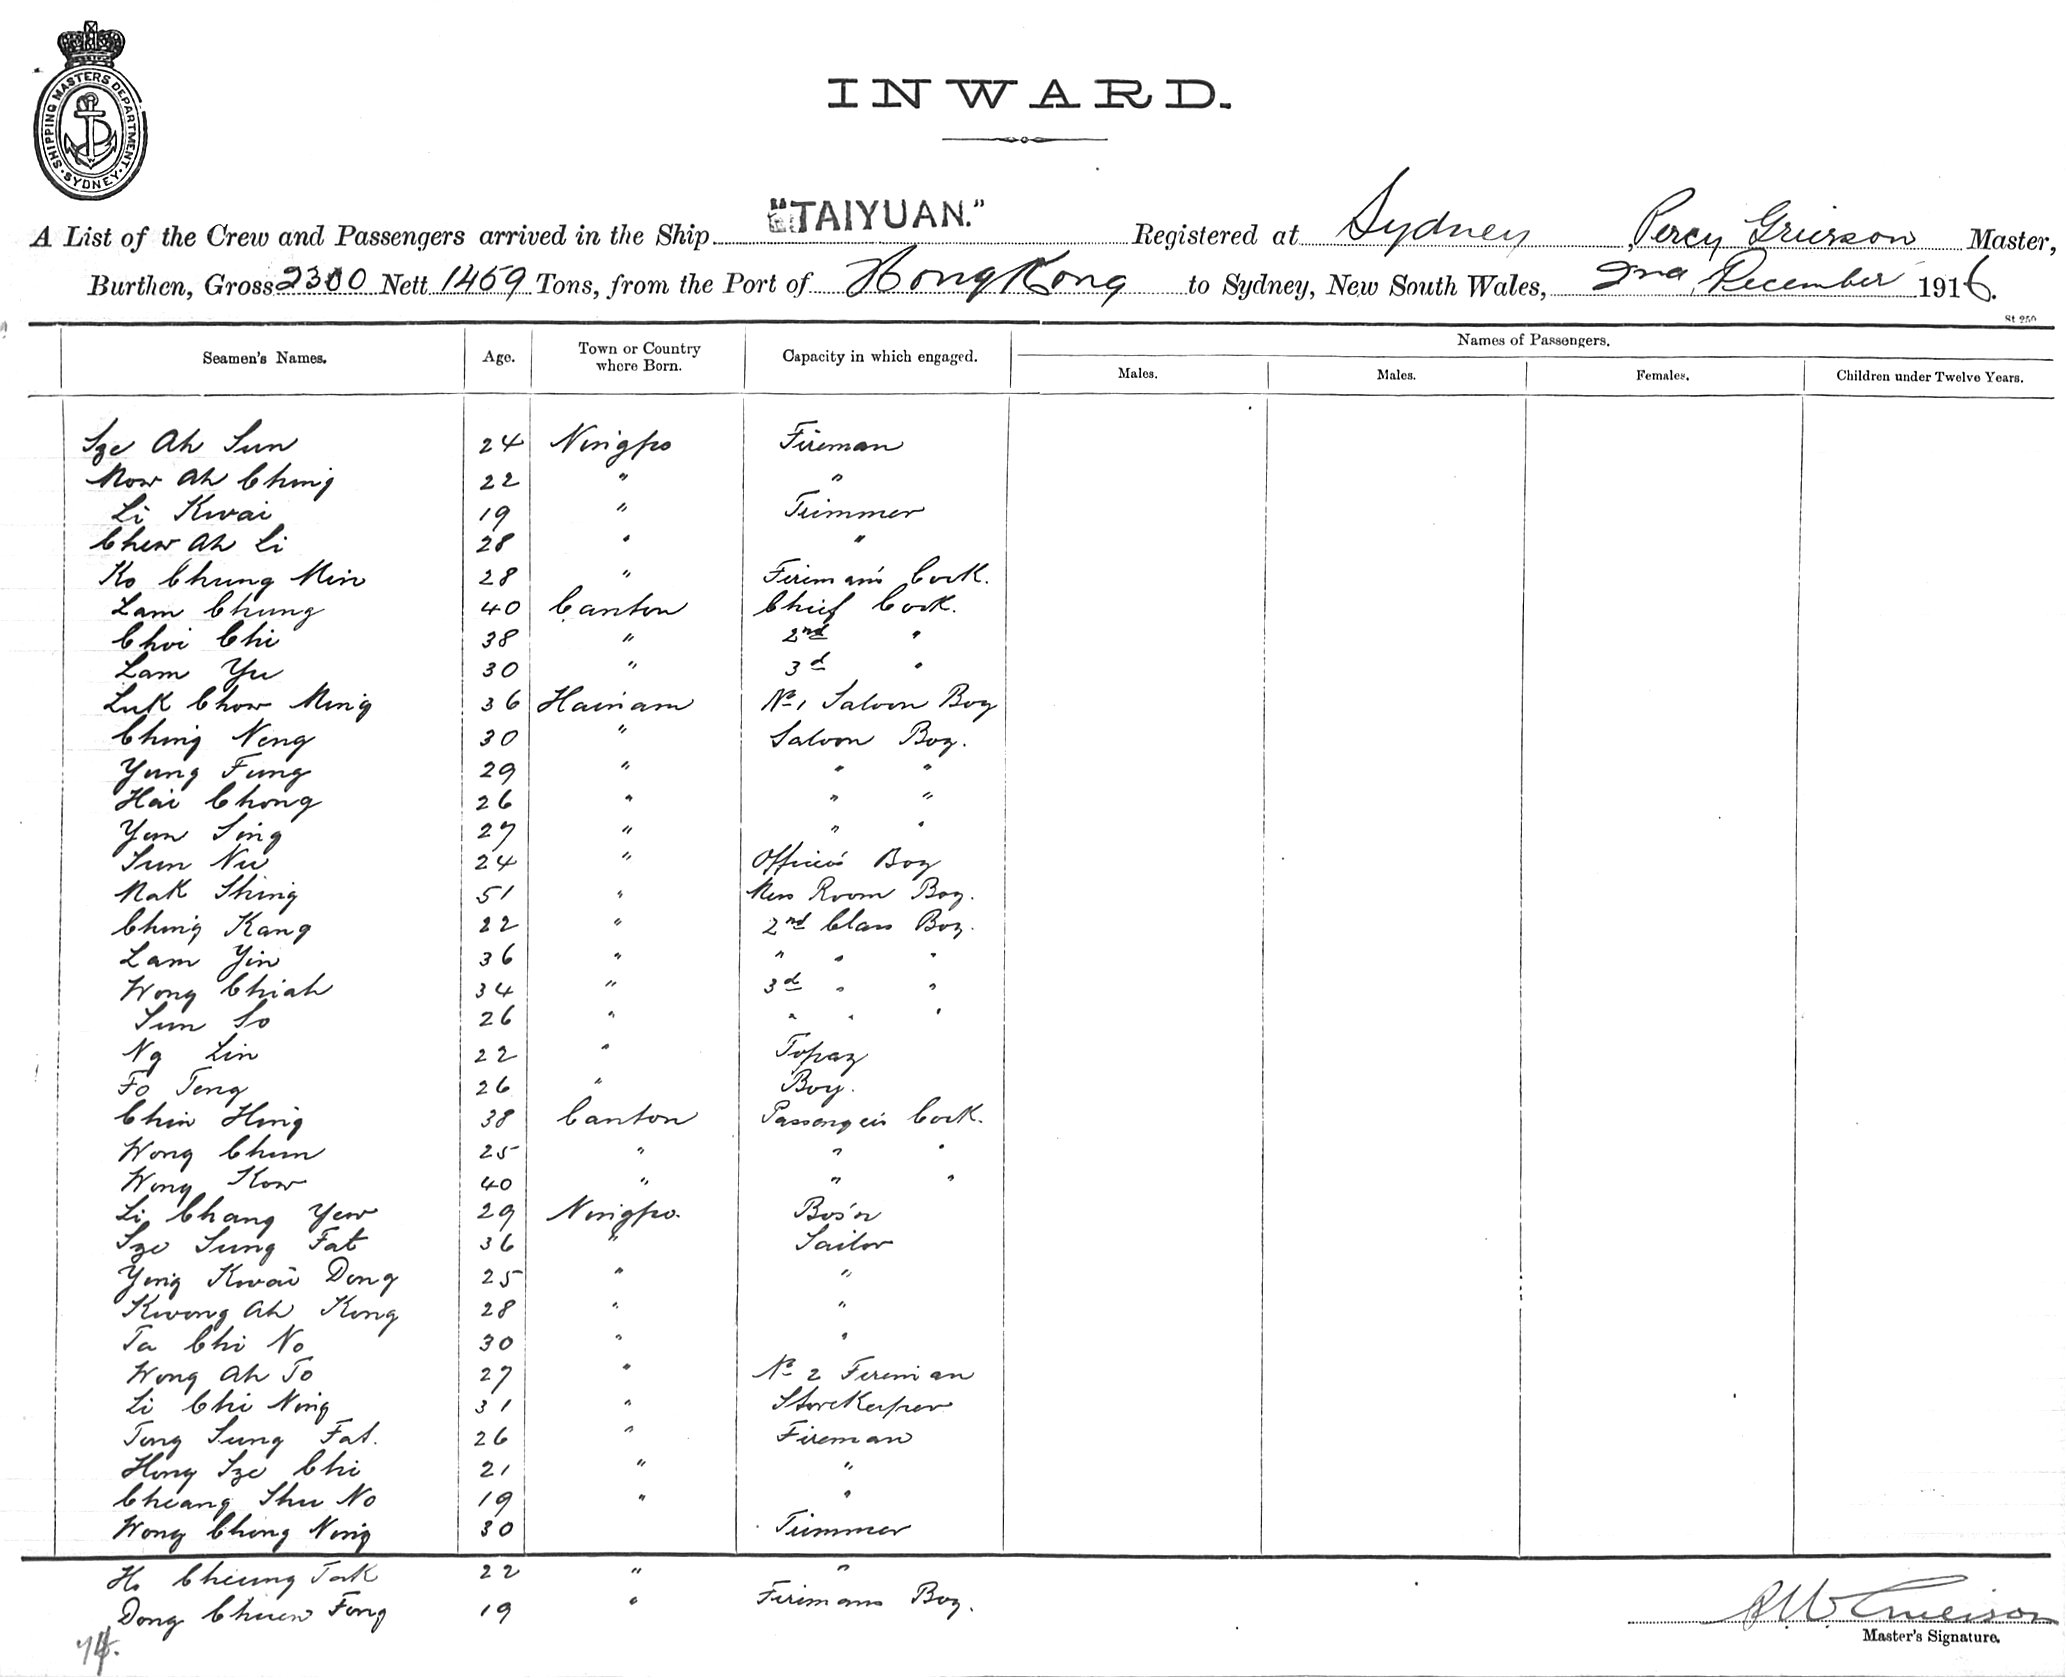 SHIPPING MASTERS DEPARTMENT · SYDNEY ·
INWARD.
A List of the Crew and Passengers arrived in the Ship "TAIYUAN." Registered at Sydney, Percy Grierson Master,
Burthen, Gross 2300 Nett 1459 Tons, from the Port of Hong Kong to Sydney, New South Wales, 2nd December 1916.
St 250
Seamen's Names. Age. Town or Country where Born. Capacity in which engaged. Names of Passengers.
Males. Males. Females. Children under Twelve Years.
Sze Ah Sun 24 Ningpo Fireman
Mow Ah Ching 22 " "
Li Kwai 19 " Trimmer
Chew Ah Li 28 " "
Ko Chung Min 28 " Fireman's Cook.
Lam Chung 40 Canton Chief Cook.
Choi Chi 38 " 2nd "
Lam Yu 30 " 3d "
Luk Chow Ming 36 Hainam No 1 Saloon Boy
Ching Neng 30 " Saloon Boy.
Yung Fung 29 " " "
Hai Chong 26 " " "
Yun Sing 27 " " "
Sun Nu 24 " Officers Boy
Mak Shing 51 " Mess Room Boy.
Ching Kang 22 " 2nd Class Boy.
Lam Yin 36 " " " "
Wong Chiah 34 " 3d " "
Sun So 26 " " " "
Ng Lin 22 " Topaz
Fo Teng 26 " Boy.
Chin Hing 38 Canton Passengers Cook.
Wong Chun 25 " " "
Wong Kow 40 " " "
Li Chang Yew 29 Ningpo. Bos'n
Sze Sung Fat 36 " Sailor
Ying Kwai Dong 25 " "
Kwong Ah Kong 28 " "
Ta Chi No 30 " "
Wong Ah To 27 " No 2 Fireman
Li Chi Ning 31 " Storekeeper
Tong Sung Fat. 26 " Fireman
Hong Sze Chi 21 " "
Cheang Shu No 19 " "
Wong Ching Ning 30 Trimmer
Ho Cheung Tak 22 " "
Dong Chuen Fong 19 " Firemans Boy.
74.
Master's Signature.